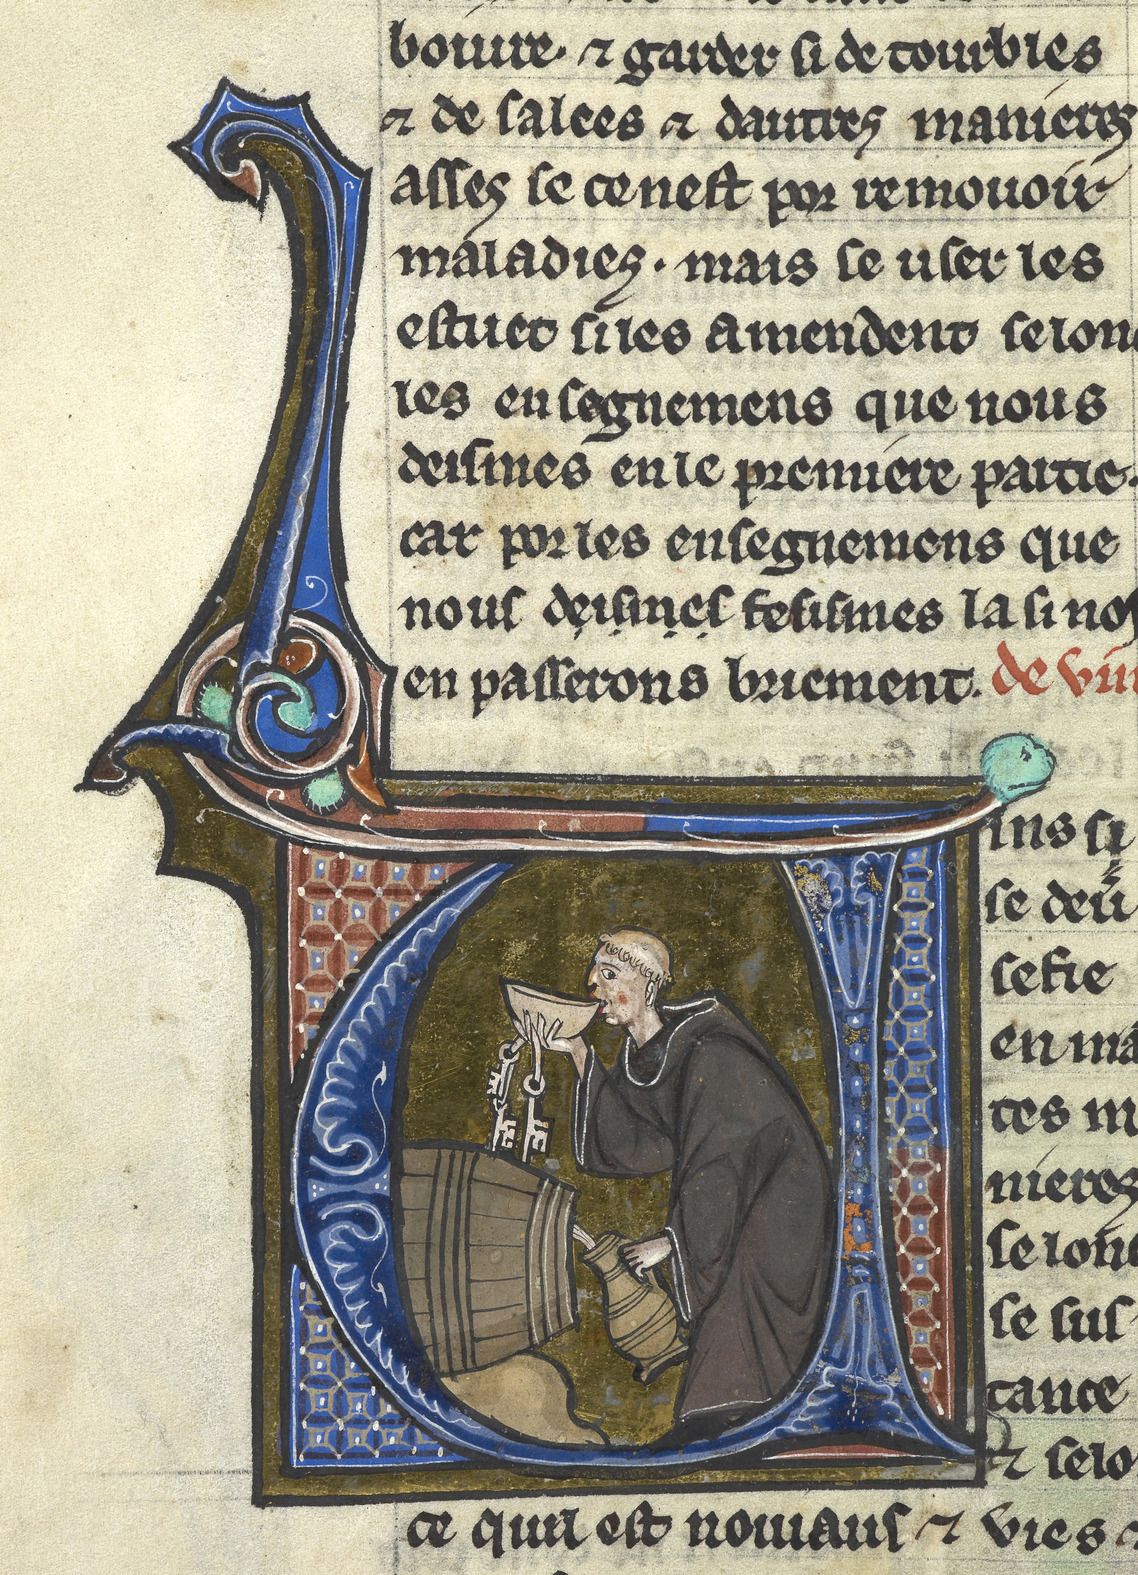 boiure · ⁊ garder si de tourbles
⁊ de salees ⁊ dautres manieres
asses se ce nest por remouoir
maladies · mais se user les
estuet si les amendent selonc
les ensegnemens que nous
deismes en le premiere partie ·
car por les ensegnemens que
nous deismes fesismes la si nos
en passerons briement. de vin
ins si
se deu
sefie
en ma
tes m
nieres
selonc
se sus
tance
⁊ selo
ce quil est nouiaus ⁊ vies